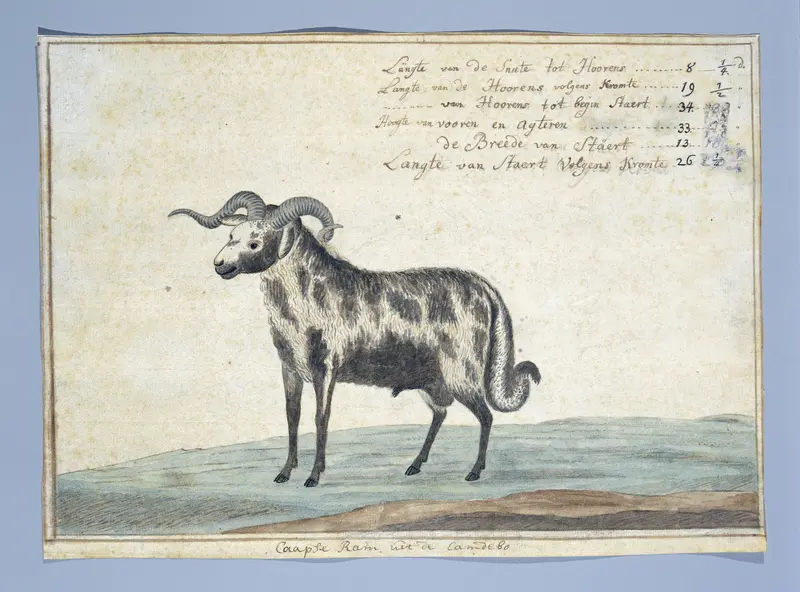 Langte van de Snute tot Hoorens ........ 8 1/4 d.
Langte van de Hoorens volgens Kromte ..... 19 1/2 "
........ van Hoorens tot begin Staert ... 34.
Hoogte van vooren en agteren ........... 33.
de Breede van Staert ...... 13.
Langte van Staert Volgens Kromte 26 1/2
Caapse Ram uit de Camdebo